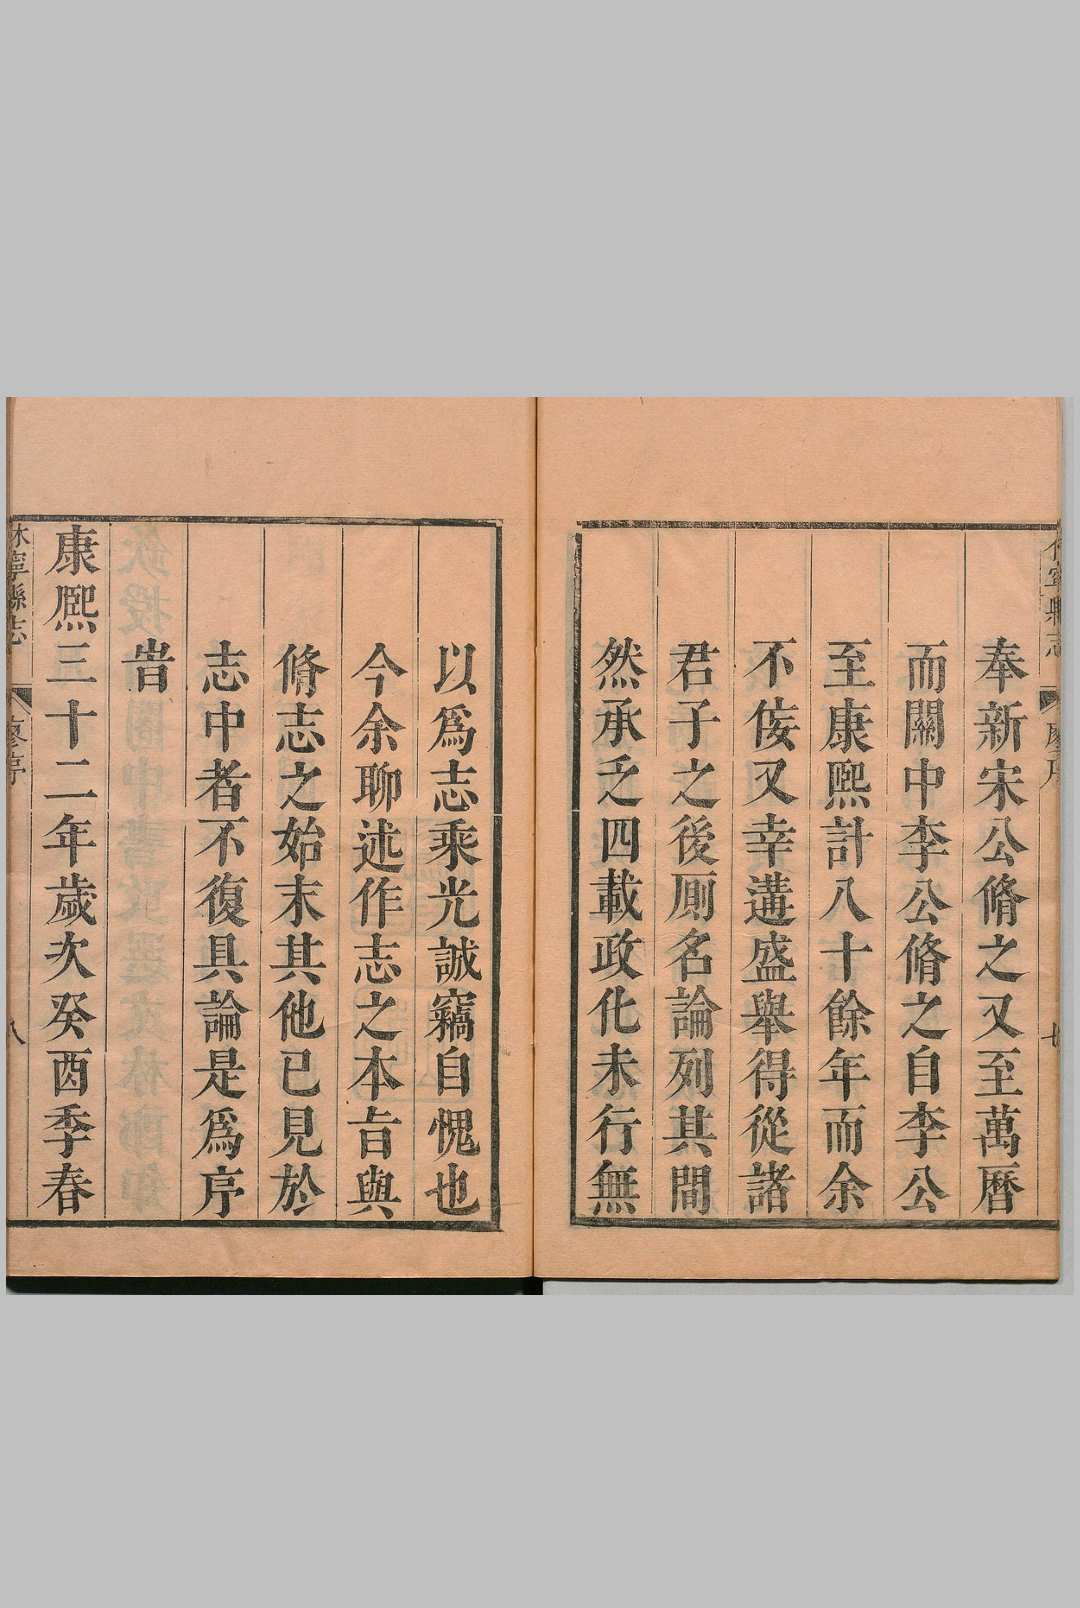 休寧縣志
廖序
七
奉新宋公脩之又至萬曆
而關中李公脩之自李公
至康熙計八十餘年而余
不侫又幸遘盛舉得從諸
君子之後厠名論列其間
然承乏四載政化未行無
以爲志乘光誠竊自愧也
今余聊述作志之本旨與
脩志之始末其他已見於
志中者不復具論是爲序
旹
康熙三十二年歲次癸酉季春
休寧縣志
廖序
八